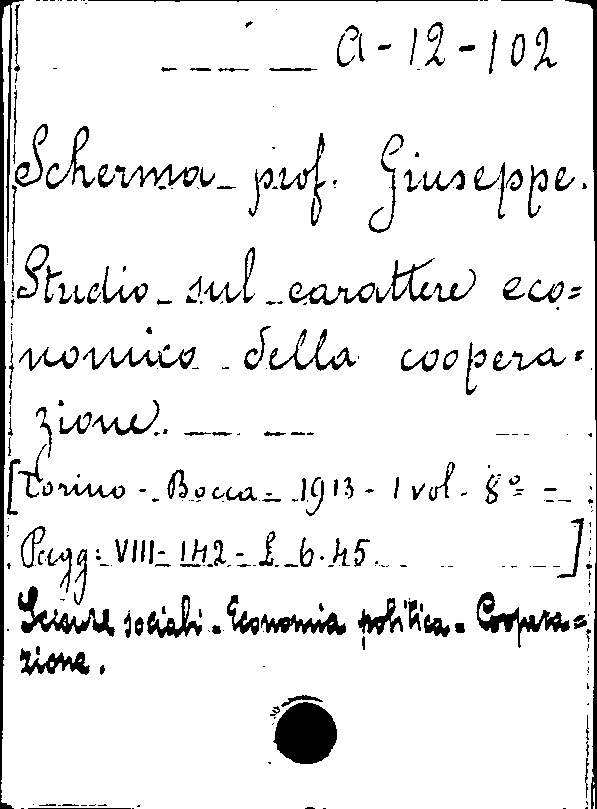 A-12-102
Scherma prof. Giuseppe.
Studio sul carattere eco=
nomico della coopera=
zione.
[Torino - Bocca - 1913 - 1 vol. 8º =
Pagg: VIII-142 - £ 6.45 ]
Scienze sociali - Economia politica - Coopera=
zione.